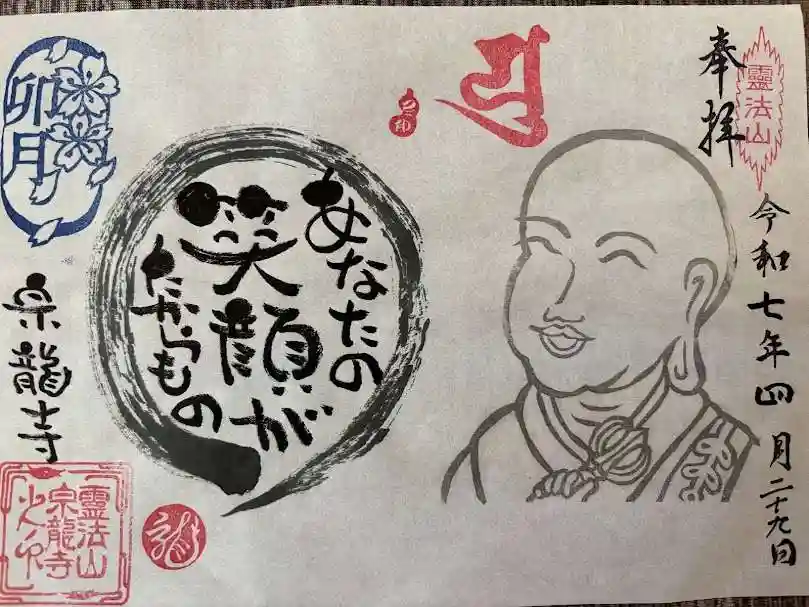 奉拝
靈法山
令和七年四月二十九日
あなたの
笑顔が
たからもの
卯月
宗龍寺
靈法山
宗龍寺
龍